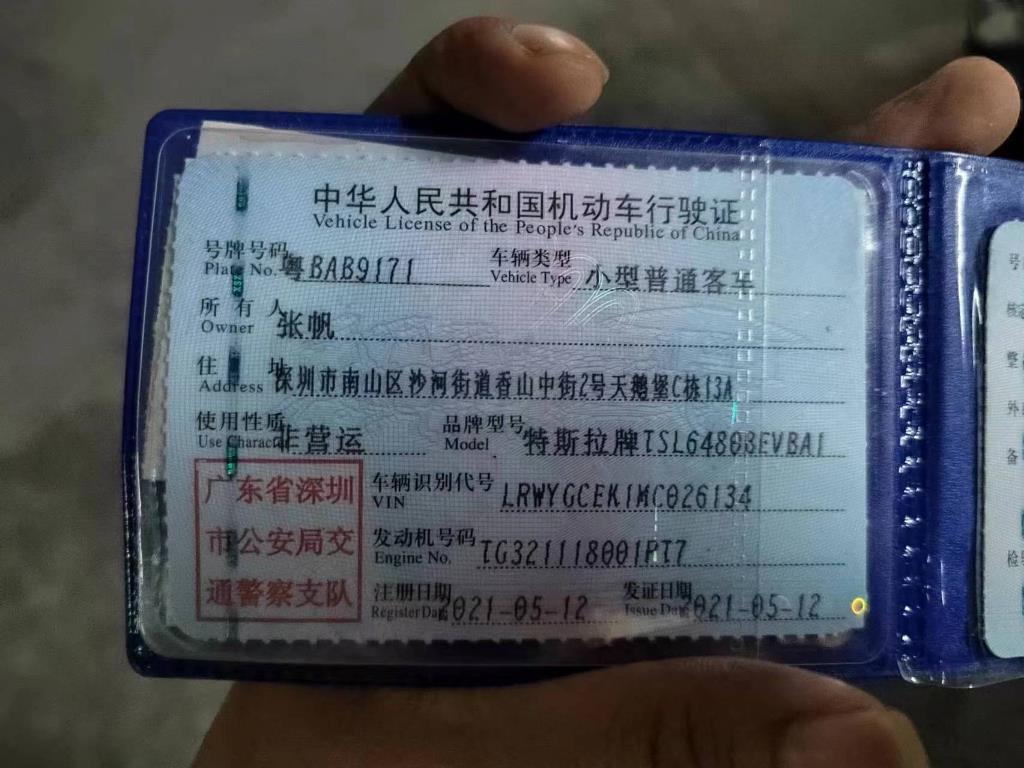 中华人民共和国机动车行驶证
Vehicle License of the People's Republic of China
号牌号码 粤BAB9171 车辆类型 小型普通客车
Plate No. Vehicle Type
所有人 张帆
Owner
住址 深圳市南山区沙河街道香山中街2号天鹅堡C栋13A
Address
使用性质 非营运 品牌型号 特斯拉牌TSL6480BEVBA1
Use Character Model
广东省深圳
市公安局交
通警察支队
车辆识别代号 LRWYGCEK1MC026134
VIN
发动机号码 TG321118001RT7
Engine No.
注册日期 2021-05-12 发证日期 2021-05-12
Register Date Issue Date
号
核
整
外
备
检验